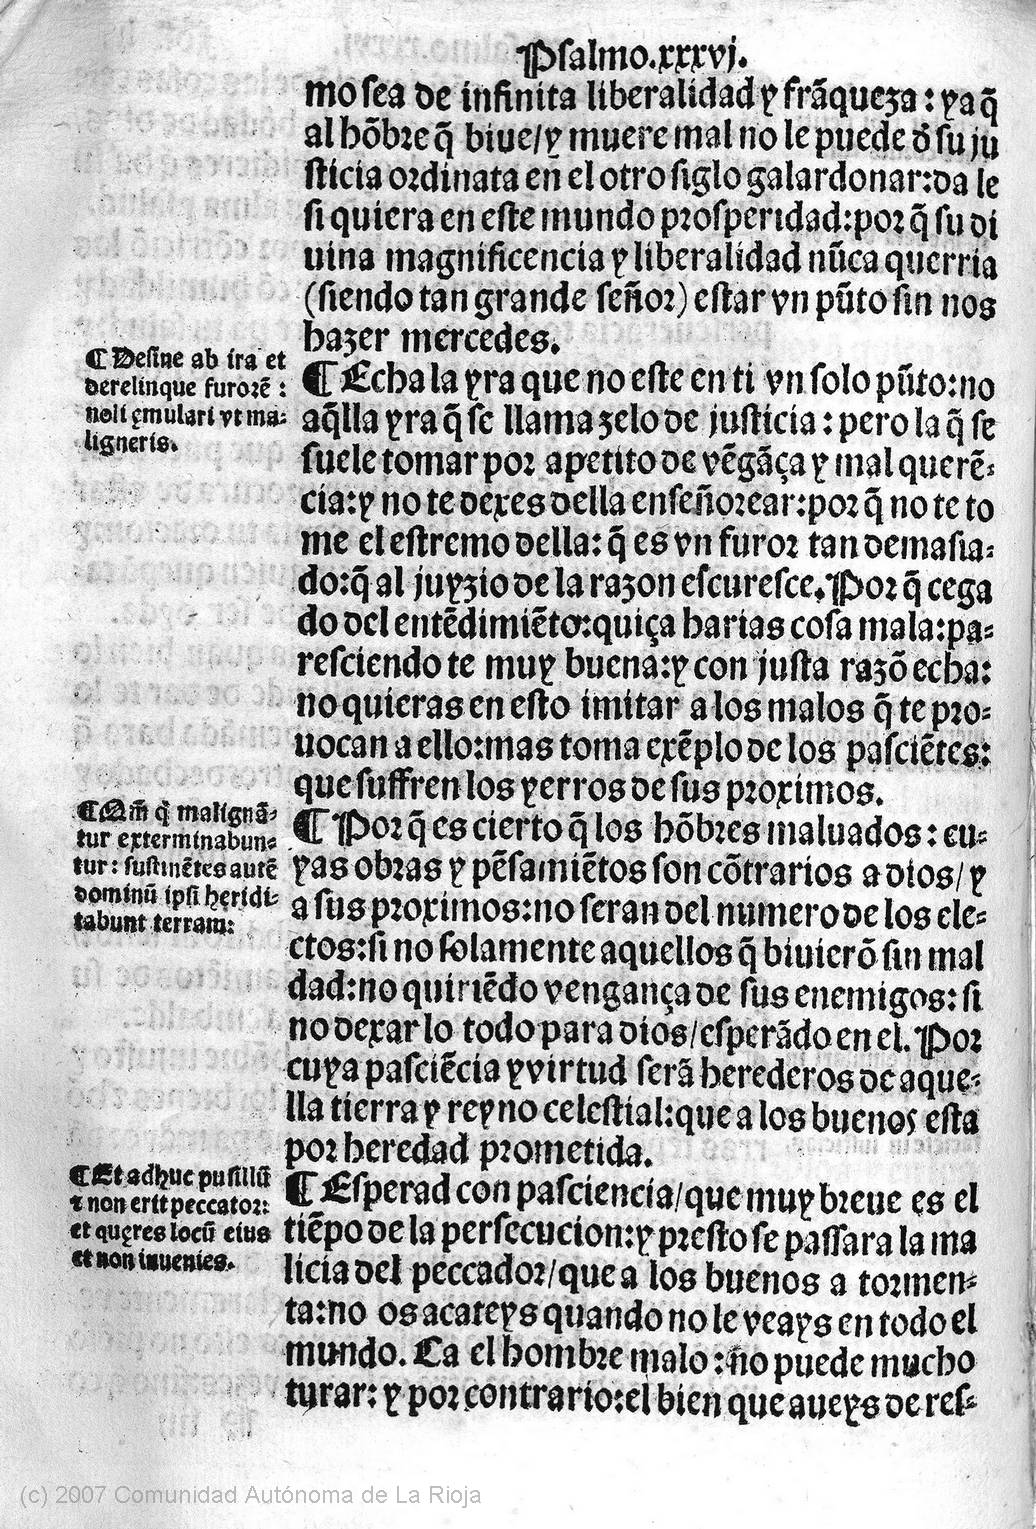 Psalmo.xxxvj.
mo sea de infinita liberalidad y frãqueza : ya q̃
al hõbre q̃ biue/y muere mal no le puede d̕ su ju
sticia ordinata en el otro siglo galardonar:da le
si quiera en este mundo prosperidad:por q̃ su di
uina magnificencia y liberalidad nũca querria
(siendo tan grande señor) estar vn pũto sin nos
hazer mercedes.
¶ Desine ab ira et
derelinque furorẽ :
noli ęmulari vt ma-
ligneris.
¶ Echa la yra que no este en ti vn solo pũto:no
aq̃lla yra q̃ se llama zelo de justicia : pero la q̃ se
suele tomar por apetito de vẽgãça y mal querẽ-
cia:y no te dexes della enseñorear:por q̃ no te to
me el estremo della: q̃ es vn furor tan demasia-
do:q̃ al juyzio de la razon escuresce. Por q̃ cega
do del entẽdimiẽto:quiça harias cosa mala:pa-
resciendo te muy buena:y con justa razõ echa:
no quieras en esto imitar a los malos q̃ te pro-
uocan a ello:mas toma exẽplo de los pasciẽtes:
que suffren los yerros de sus proximos.
¶ Qm̃ q̃ malignã-
tur exterminabun-
tur: sustinẽtes autẽ
dominũ ipsi heridi-
tabunt terram:
¶ Por q̃ es cierto q̃ los hõbres maluados : cu-
yas obras y pẽsamiẽtos son cõtrarios a dios/ y
a sus proximos:no seran del numero de los ele-
ctos:si no solamente aquellos q̃ biuierõ sin mal
dad:no quiriẽdo vengança de sus enemigos: si
no dexar lo todo para dios/esperãdo en el. Por
cuya pasciẽcia y virtud serã herederos de aque-
lla tierra y reyno celestial:que a los buenos esta
por heredad prometida.
¶ Et adhuc pusillũ
⁊ non erit peccator:
et quęres locũ eius
et non inuenies.
¶ Esperad con pasciencia/que muy breue es el
tiẽpo de la persecucion:y presto se passara la ma
licia del peccador/que a los buenos a tormen-
ta:no os acateys quando no le veays en todo el
mundo. Ca el hombre malo : no puede mucho
turar: y por contrario:el bien que aueys de res-
(c) 2007 Comunidad Autónoma de La Rioja